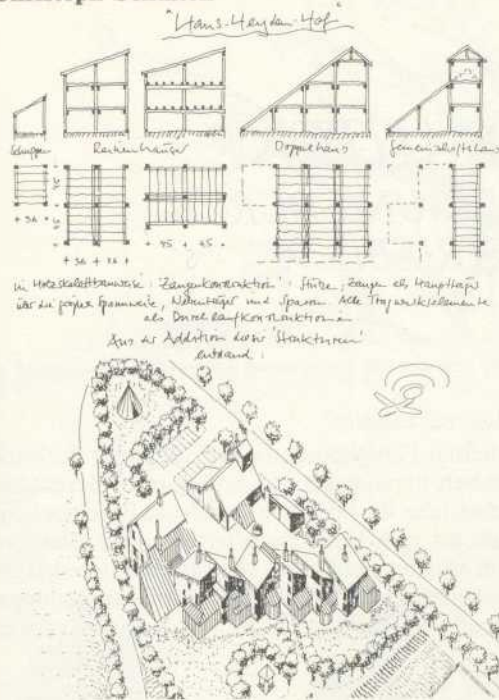 "Hans-Heyden-Hof"
Schuppen Reihenhäuser Doppelhaus Gemeinschaftshaus
+ 3.6 +
+ 3.6 + 3.6 +
+ 4.5 + 4.5 +
in Holzskelettbauweise: 'Zangenkonstruktion': Stütze, Zangen als Hauptträger
über die größere Spannweite, Nebenträger und Sparren. Alle Tragwerkselemente
als Durchlaufkonstruktionen.
Aus der Addition dieser 'Strukturen'
entstand: